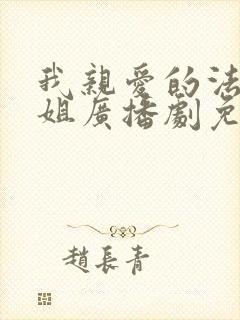 我親愛的法
姐廣播劇免
趙長青